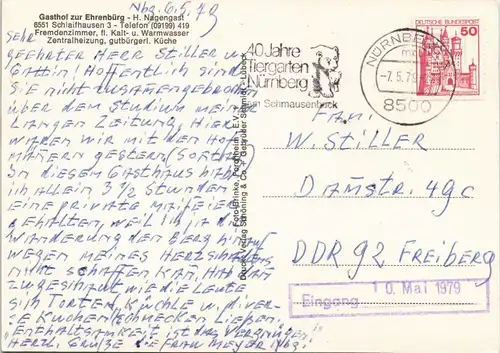 Nbg. 6.5.79
Gasthof zur Ehrenbürg - H. Nagengast
8551 Schlaifhausen 3 - Telefon (09199) 419
Fremdenzimmer, fl. Kalt- u. Warmwasser
Zentralheizung, gutbürgerl. Küche
Sehr
geehrter Herr Stiller u.
Gattin! Hoffentlich sind
Sie nicht zusammengebrochen
über dem Studium meiner
langen Zeitung. Hier
waren wir mit den
gestern.
In diesem Gasthaus hab
ich allein 3 1/2 Stunden
eine private Maifeier
gehalten, weil ich ja die
Wanderung den Berg hinauf
wegen meines
nicht schaffen kan, hab
zugeschaut wie die Leute
sich Torten, Küchle u. diver-
se Kuchen schmecken ließen.
"Enthaltsamkeit ist das Vergnügen"
Herzl. Grüße Frau Meyer Nbg.
Foto-Brinke, Forchheim, E.V.
Verlag Schöning & Co. + Gebrüder Schmidt, Lübeck
40 Jahre
Tiergarten
Nürnberg
am Schmausenbuck
NÜRNBERG
-7.5.79
8500
DEUTSCHE BUNDESPOST
50
Fam.
W. Stiller
Damstr. 49c
DDR 92 Freiberg
Eingang
10. Mai 1979